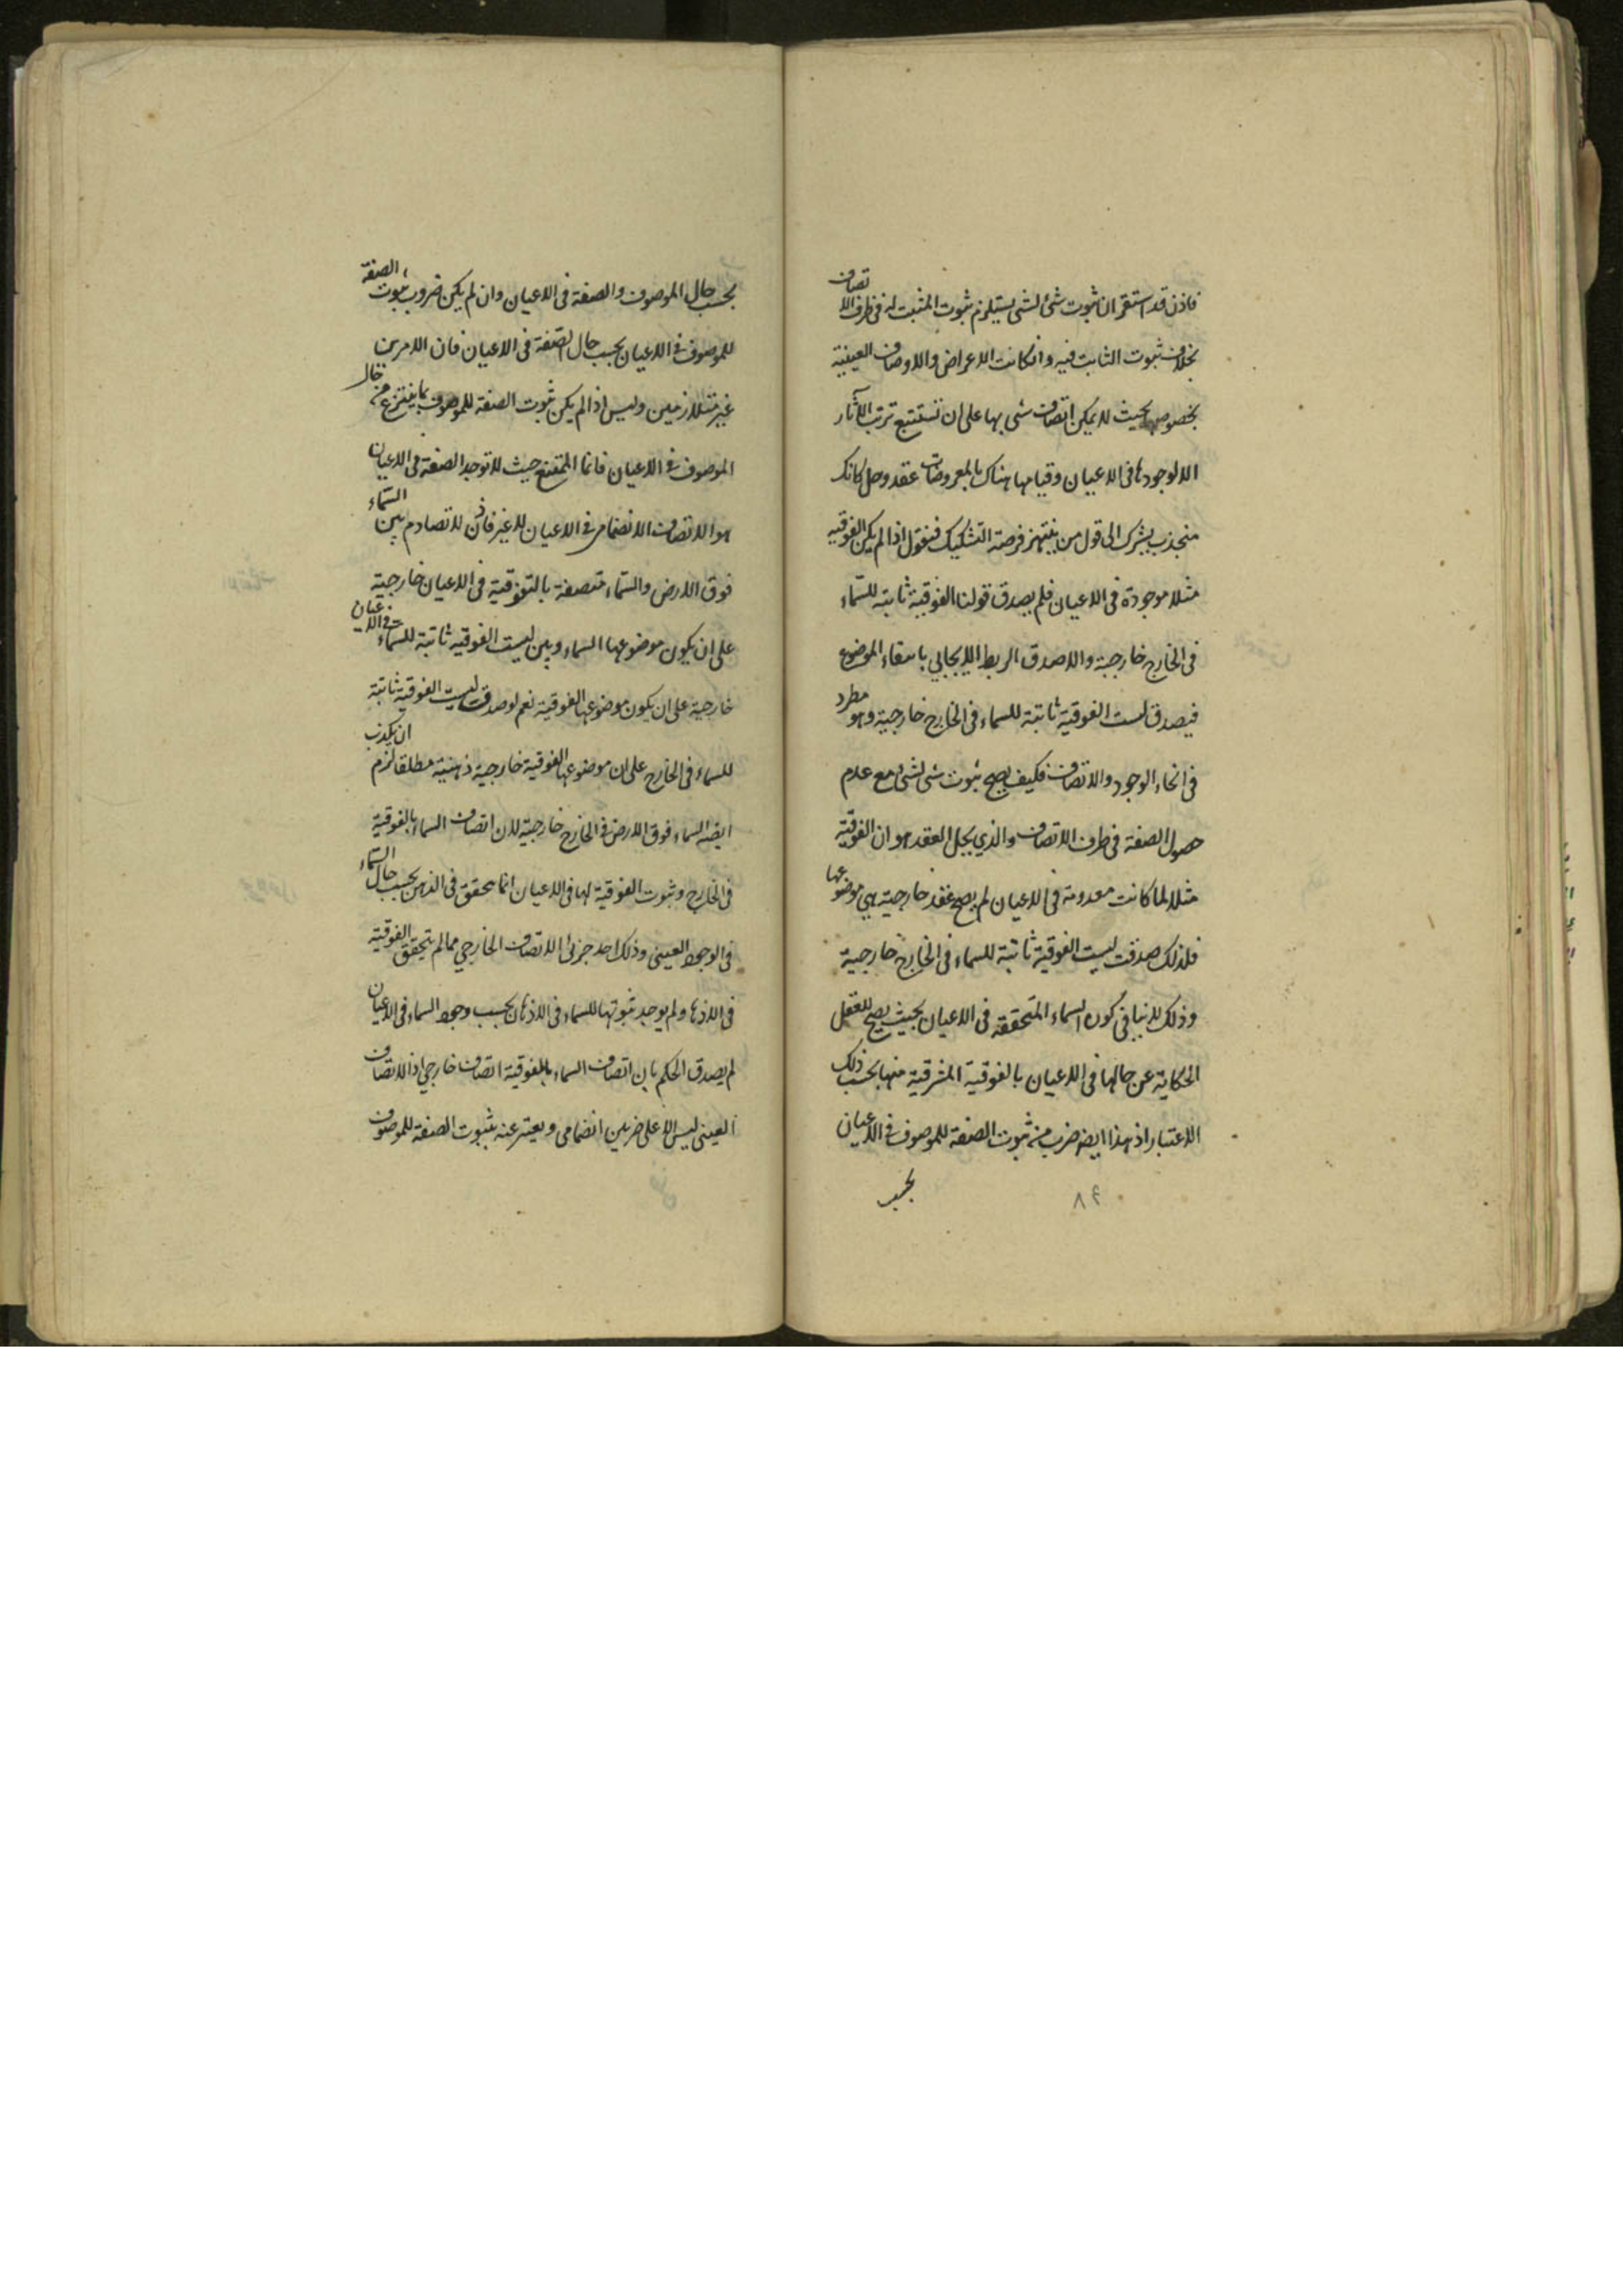 فاذن قد استقر ان ثبوت شئ لشئ يستلزم ثبوت المثبت له فى ظرف الاتصاف
بخلاف ثبوت الثابت فيه وانكانت الاعراض والاوصاف العينية
بخصوصها بحيث لا يمكن اتصاف شئ بها على ان تستتبع ترتب الآثار
الا لوجودها فى الاعيان وقيامها هناك بالمعروضات عقد وحل كانك
منجذب بشرك الى قول من ينتهز فرصة التشكيك فنقول اذا لم يكن الفوقية
مثلا موجودة فى الاعيان فلم يصدق قولنا الفوقية ثابتة للسماء
فى الخارج خارجية والا صدق الربط الايجابي بانتفاء الموضوع
فيصدق ليست الفوقية ثابتة للسماء فى الخارج خارجية وهو مطرد
فى انحاء الوجود والاتصاف فكيف يصح ثبوت شئ لشئ مع عدم
حصول الصفة فى ظرف الاتصاف والذي يحل العقد هو ان الفوقية
مثلا لما كانت معدومة فى الاعيان لم يصح عقد خارجية هي موضوعها
فلذلك صدقت ليست الفوقية ثابتة للسماء فى الخارج خارجية
وذلك لا ينافى كون السماء المتحققة فى الاعيان بحيث يصح للعقل
الحكاية عن حالها فى الاعيان بالفوقية المنتزعة منها بحسب ذلك
الاعتبار اذ هذا ايضا ضرب من ثبوت الصفة للموصوف فى الاعيان
بحسب
٨٤
بحسب حال الموصوف والصفة فى الاعيان وان لم يكن ضروب ثبوت الصفة
للموصوف فى الاعيان بحسب حال الصفة فى الاعيان فان الامرين
غير متلازمين وليس اذا لم يكن ثبوت الصفة للموصوف بما ينتزع من حال
الموصوف فى الاعيان فانما الممتنع حيث لا توجد الصفة فى الاعيان
هو الاتصاف الانضمامى فى الاعيان لا غير فاذن لا تصادم بين السماء
فوق الارض والسماء متصفة بالفوقية فى الاعيان خارجية
على ان يكون موضوعها السماء وبين ليست الفوقية ثابتة للسماء فى الاعيان
خارجية على ان يكون موضوعها الفوقية نعم لو صدقت ليست الفوقية ثابتة
للسماء فى الخارج على ان موضوعها الفوقية خارجية ذهنية مطلقا لزم ان يكذب
ايضا السماء فوق الارض فى الخارج خارجية لان اتصاف السماء بالفوقية
فى الخارج وثبوت الفوقية لها فى الاعيان انما تحقق فى الذهن بحسب حال السماء
فى الوجود العينى وذلك احد جزئى الاتصاف الخارجي فما لم يتحقق الفوقية
فى الاذهان ولم يوجد ثبوتها للسماء فى الاذهان بحسب وجود السماء فى الاعيان
لم يصدق الحكم بان اتصاف السماء بالفوقية اتصاف خارجي اذ الاتصاف
العينى ليس الا على ضربين انضمامى ويعتبر عنه بثبوت الصفة للموصوف